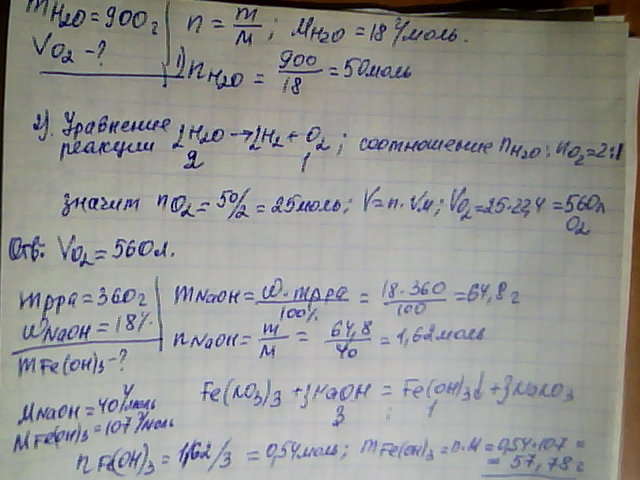 mH₂O = 900г
n = m/M ; MH₂O = 18 г/моль.
VO₂ - ?
1) nH₂O = 900/18 = 50 моль
2). Уравнение реакции 2H₂O → 2H₂ + O₂ ; соотношение nH₂O : nO₂ = 2:1
2 1
значит nO₂ = 50/2 = 25 моль ; V = n · Vм ; VO₂ = 25 · 22,4 = 560л
O₂
Отв: VO₂ = 560л.
mрра = 360г
mNaOH = ω · mрра/100% = 18 · 360/100 = 64,8 г
ωNaOH = 18%
nNaOH = m/M = 64,8/40 = 1,62 моль
mFe(OH)₃ - ?
Fe(NO₃)₃ + 3NaOH = Fe(OH)₃↓ + 3NaNO₃
3 : 1
MNaOH = 40 г/моль
MFe(OH)₃ = 107 г/моль
nFe(OH)₃ = 1,62/3 = 0,54 моль ; mFe(OH)₃ = n · M = 0,54 · 107 =
= 57,78 г